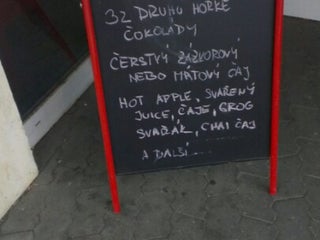 32 DRUHŮ HORKÉ
ČOKOLÁDY
ČERSTVÝ ZÁZVOROVÝ
NEBO MÁTOVÝ ČAJ
HOT APPLE, SVAŘENÝ
JUICE, ČAJE, GROG
SVAŘÁK, CHAI ČAJ
A DALŠÍ.....